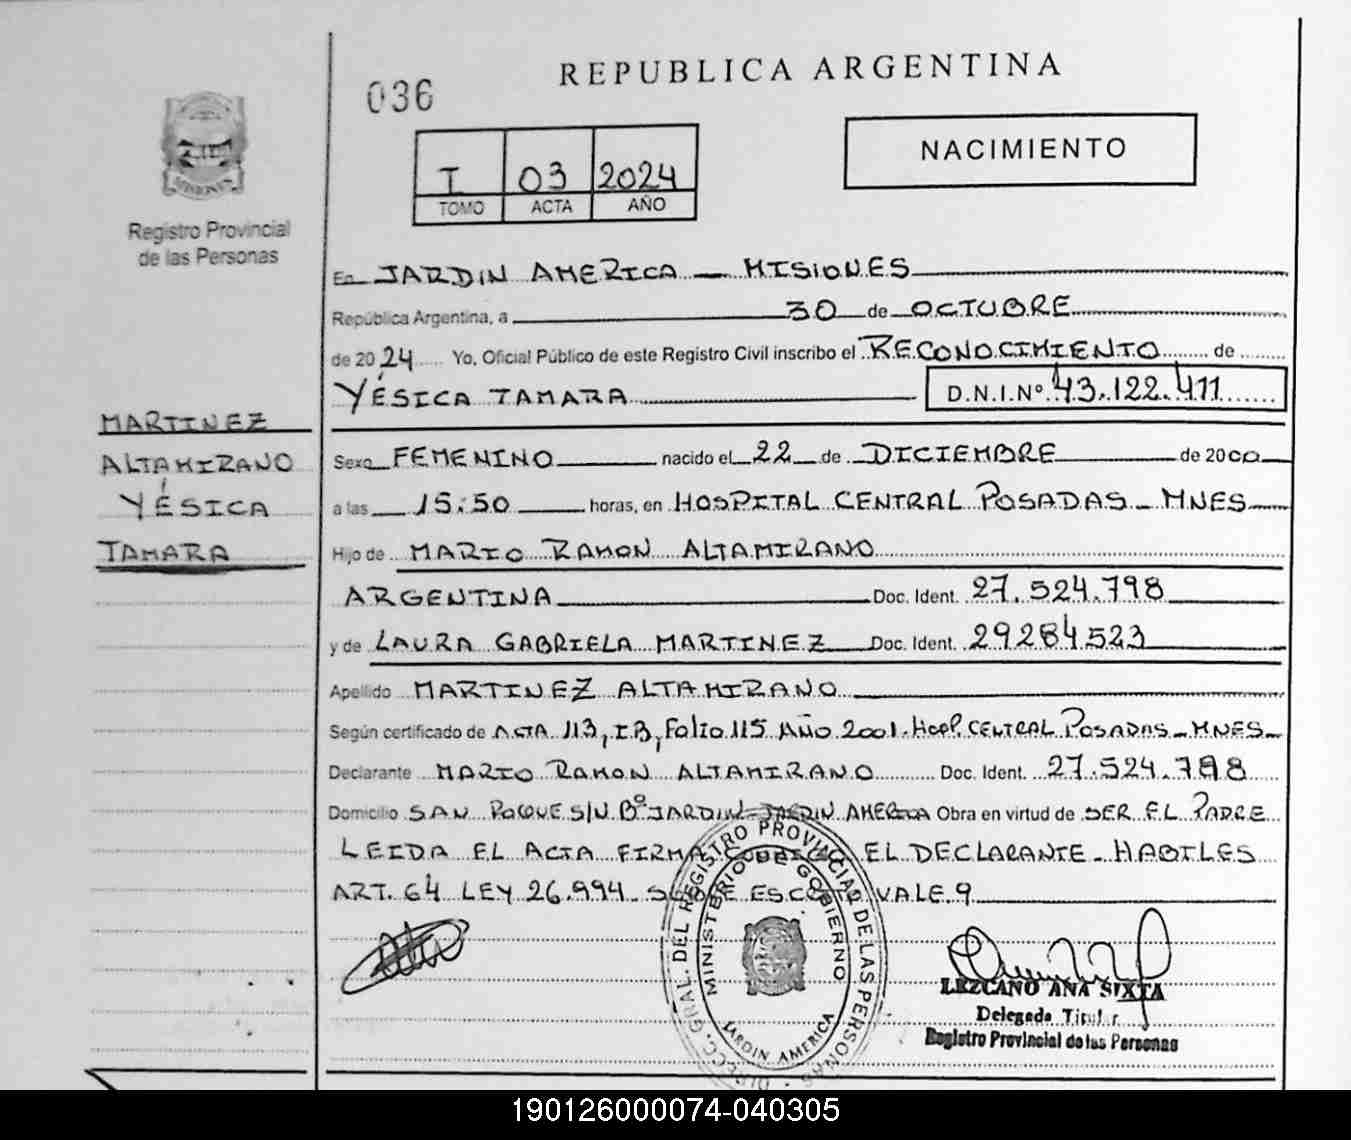 036
REPUBLICA ARGENTINA
NACIMIENTO
I 03 2024
TOMO ACTA AÑO
MISIONES
Registro Provincial
de las Personas
En JARDIN AMERICA - MISIONES
República Argentina, a 30 de OCTUBRE
de 2024 Yo, Oficial Público de este Registro Civil inscribo el RECONOCIMIENTO de
YÉSICA TAMARA D.N.I.Nº 43.122.411
MARTINEZ
ALTAMIRANO
YÉSICA
TAMARA
Sexo FEMENINO nacido el 22 de DICIEMBRE de 2000
a las 15:50 horas, en HOSPITAL CENTRAL POSADAS - MNES
Hijo de MARIO RAMON ALTAMIRANO
ARGENTINA Doc. Ident. 27.524.798
y de LAURA GABRIELA MARTINEZ Doc. Ident. 29284523
Apellido MARTINEZ ALTAMIRANO
Según certificado de ACTA 113, I.B, Folio 115 AÑO 2001. Hosp. CENTRAL POSADAS - MNES
Declarante MARIO RAMON ALTAMIRANO Doc. Ident. 27.524.798
Domicilio SAN ROQUE S/N Bº JARDIN - JARDIN AMERICA Obra en virtud de SER EL PADRE
LEIDA EL ACTA FIRMA EL DECLARANTE - HABILES
ART. 64 LEY 26.994. VALE.9
DIRECC. GRAL. DEL REGISTRO PROVINCIAL DE LAS PERSONAS
MINISTERIO DE GOBIERNO
JARDIN AMERICA
LEZCANO ANA SIXTA
Delegada Titular
Registro Provincial de las Personas
190126000074-040305